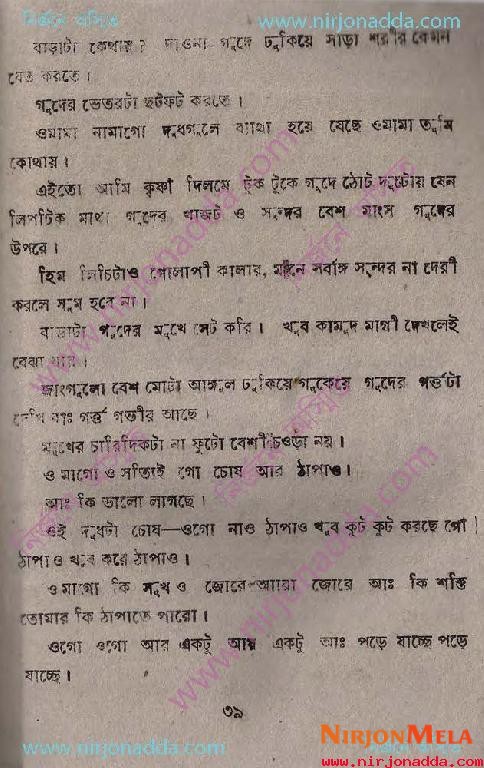 নির্জনে অস্মিতে www.nirjonadda.com
বাড়াটা কোথায়? দাওনা গুদে ঢুকিয়ে সাড়া শরীর কেমন
যেন করতে।
গুদের ভেতরটা ছটফট করতে।
ওমামা নামাগো দুধগুলে ব্যাথা হয়ে যেছে ওমামা তুমি
কোথায়।
এইতো আমি কৃষ্ণা দিলমে টুক টুকে গুদে ঠোট দুটোয় যেন
লিপটিক মাখা গুদের খাজট ও সুন্দর বেশ মাংস গুদের
উপরে।
লিচিটাও গোলাপী কালার, সর্বাঙ্গ সুন্দর না দেরী
করলে সুখ হবে না।
বাড়াটা গুদের মুখে সেট করি। খুব কামুদ মাগী দেখলেই
বোঝা যায়।
জাংগুলো বেশ মোটা আঙ্গুল ঢুকিয়ে গুদের গর্ত্তটা
দেখি বাঃ গর্ত্ত গভীর আছে।
মুখের চারিদিকটা না ফুটো বেশী চওড়া নয়।
ও মাগো ও সত্যিই গো চোষ আর ঠাপাও।
আঃ কি ভালো লাগছে।
ওই দুধটা চোষ—ওগো নাও ঠাপাও খুব কুট কুট করছে গো।
ঠাপাও খুব করে ঠাপাও।
ও মাগো কি সুখ ও জোরে আরো জোরে আঃ কি শক্তি
তোমার কি ঠাপাতে পারো।
ওগো ওগো আর একটু আর একটু আঃ পড়ে যাচ্ছে পড়ে
যাচ্ছে।
৩৯
NIRJONMELA
www.nirjonadda.com
www.nirjonadda.com